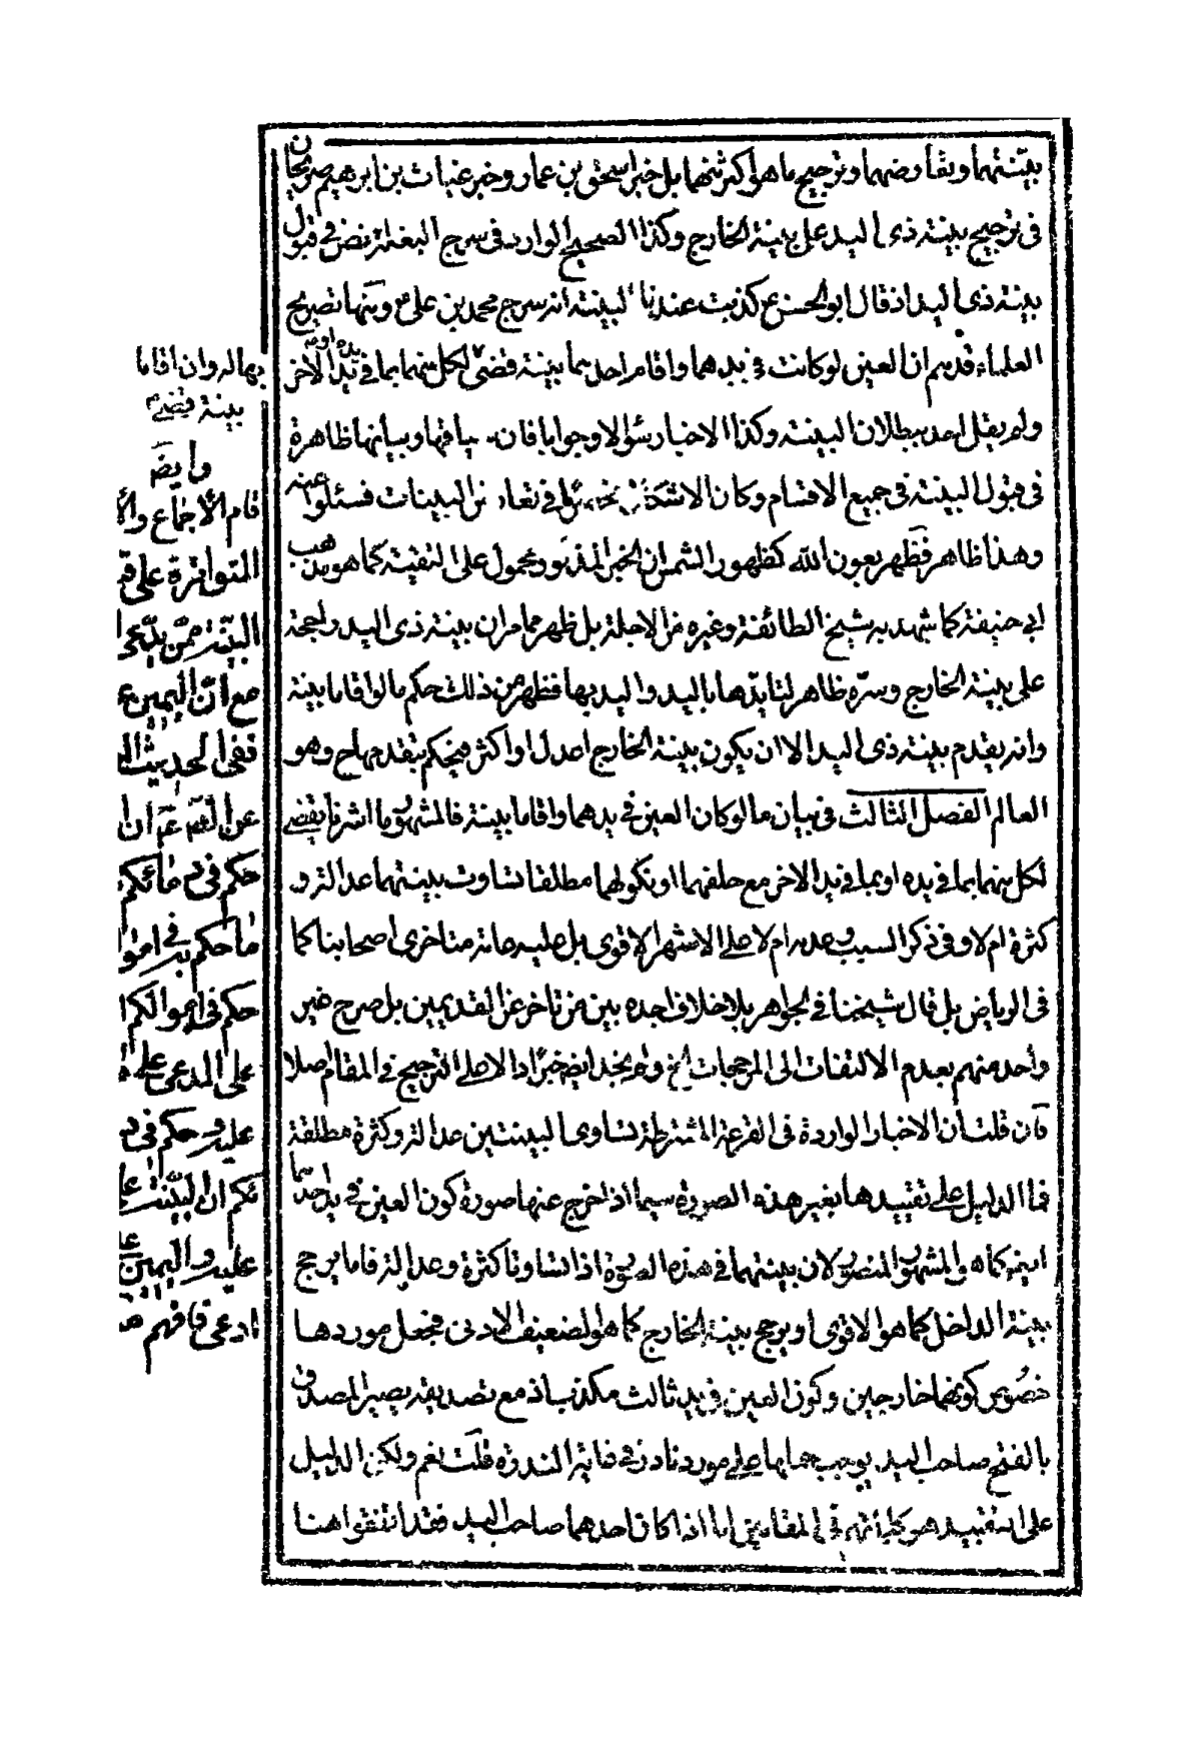 بيّنتهما وتعارضهما وترجيح ما هو اكثر منهما بل خبر اسحق بن عمار وخبر غياث بن ابرهيم صريحان
في ترجيح بينة ذى اليد على بينة الخارج وكذا الصحيح الوارد في سرج البغلة نص في قبول
بينة ذى اليد اذ قال ابو الحسن ع كذبت عندنا البينة انه سرج محمد بن على ع ومنها تصريح
العلماء قدهم ان العين لو كانت في يدهما واقام احدهما بينة قضى لكل منهما بما في يد الاخر
ولم يقل احد ببطلان البينة وكذا الاخبار سؤالا وجوابا فان سياقها وبيانها ظاهرة
في قبول البينة في جميع الاقسام وكان الاشكال في تعارض البينات فسئلوا عنه
وهذا ظاهر فظهر بعون الله كظهور الشمس ان الخبر المذبور محمول على التقية كما هو مذهب
ابي حنيفة كما شهد به شيخ الطائفة وغيره من الاجلة بل ظهر مما مر ان بينة ذى اليد راجحة
على بينة الخارج وسرّه ظاهر لتايدها باليد واليد بها فظهر من ذلك حكم ما لو اقاما بينة
وانه يقدم بينة ذى اليد الا ان يكون بينة الخارج اعدل او اكثر فيحكم بتقدمها ح وهو
العالم الفصل الثالث في بيان ما لو كان العين في يدهما واقاما بينة فالمشهور ما اشرنا يقضى
لكل منهما بما في يده او بما في يد الاخر مع حلفهما او نكولهما مطلقا تساوت بينتهما عدالة و
كثرة ام لا وفي ذكر السبب وعدمه ام لا على الاشهر الاقوى بل عليه عامة متاخرى اصحابنا كما
في الرياض بل قال شيخنا في الجواهر بلا خلاف اجده بين من تاخر عن القديمين بل صرح غير
واحد منهم بعدم الالتفات الى المرجحات الخ ولم يجد ايضا خبرا دالا على الترجيح في المقام اصلا
فان قلت ان الاخبار الواردة في القرعة المشترطة تساوى البينتين عدالة وكثرة مطلقة
فما الدليل على تقييدها بغير هذه الصورة سيما اذ اخرج عنها صورة كون العين في يد احدهما
ايضا كما هو المشهور المنصور لان بينتهما في هذه الصورة اذا تساوتا كثرة وعدالة فاما يرجح
بينة الداخل كما هو الاقوى او يرجح بينة الخارج كما هو الضعيف الادنى فيجعل موردها
خصوص كونهما خارجين وكون العين في يد ثالث مكذب اذ مع تصديقه يصير المصدق
بالفتح صاحب اليد يوجب حملها على مورد نادر في غاية الندرة قلت نعم ولكن الدليل
على التقييد هو في المقامين اما اذا كان احدهما صاحب اليد فقد اتفقوا هنا
بها له وان اقاما
بينة قضى
وايضا
قام الاجماع والا
المتواترة على
البينة ممن يدّعى
مع انّ اليمين
ففي الحديث
عن الصم ع ان
حكم في دمائكم
ما حكم به في اموا
حكم في اموالكم ا
على المدعى على ا
عليه وحكم في د
ئكم ان البيّنة على
عليه واليمين على
ادعى فافهم